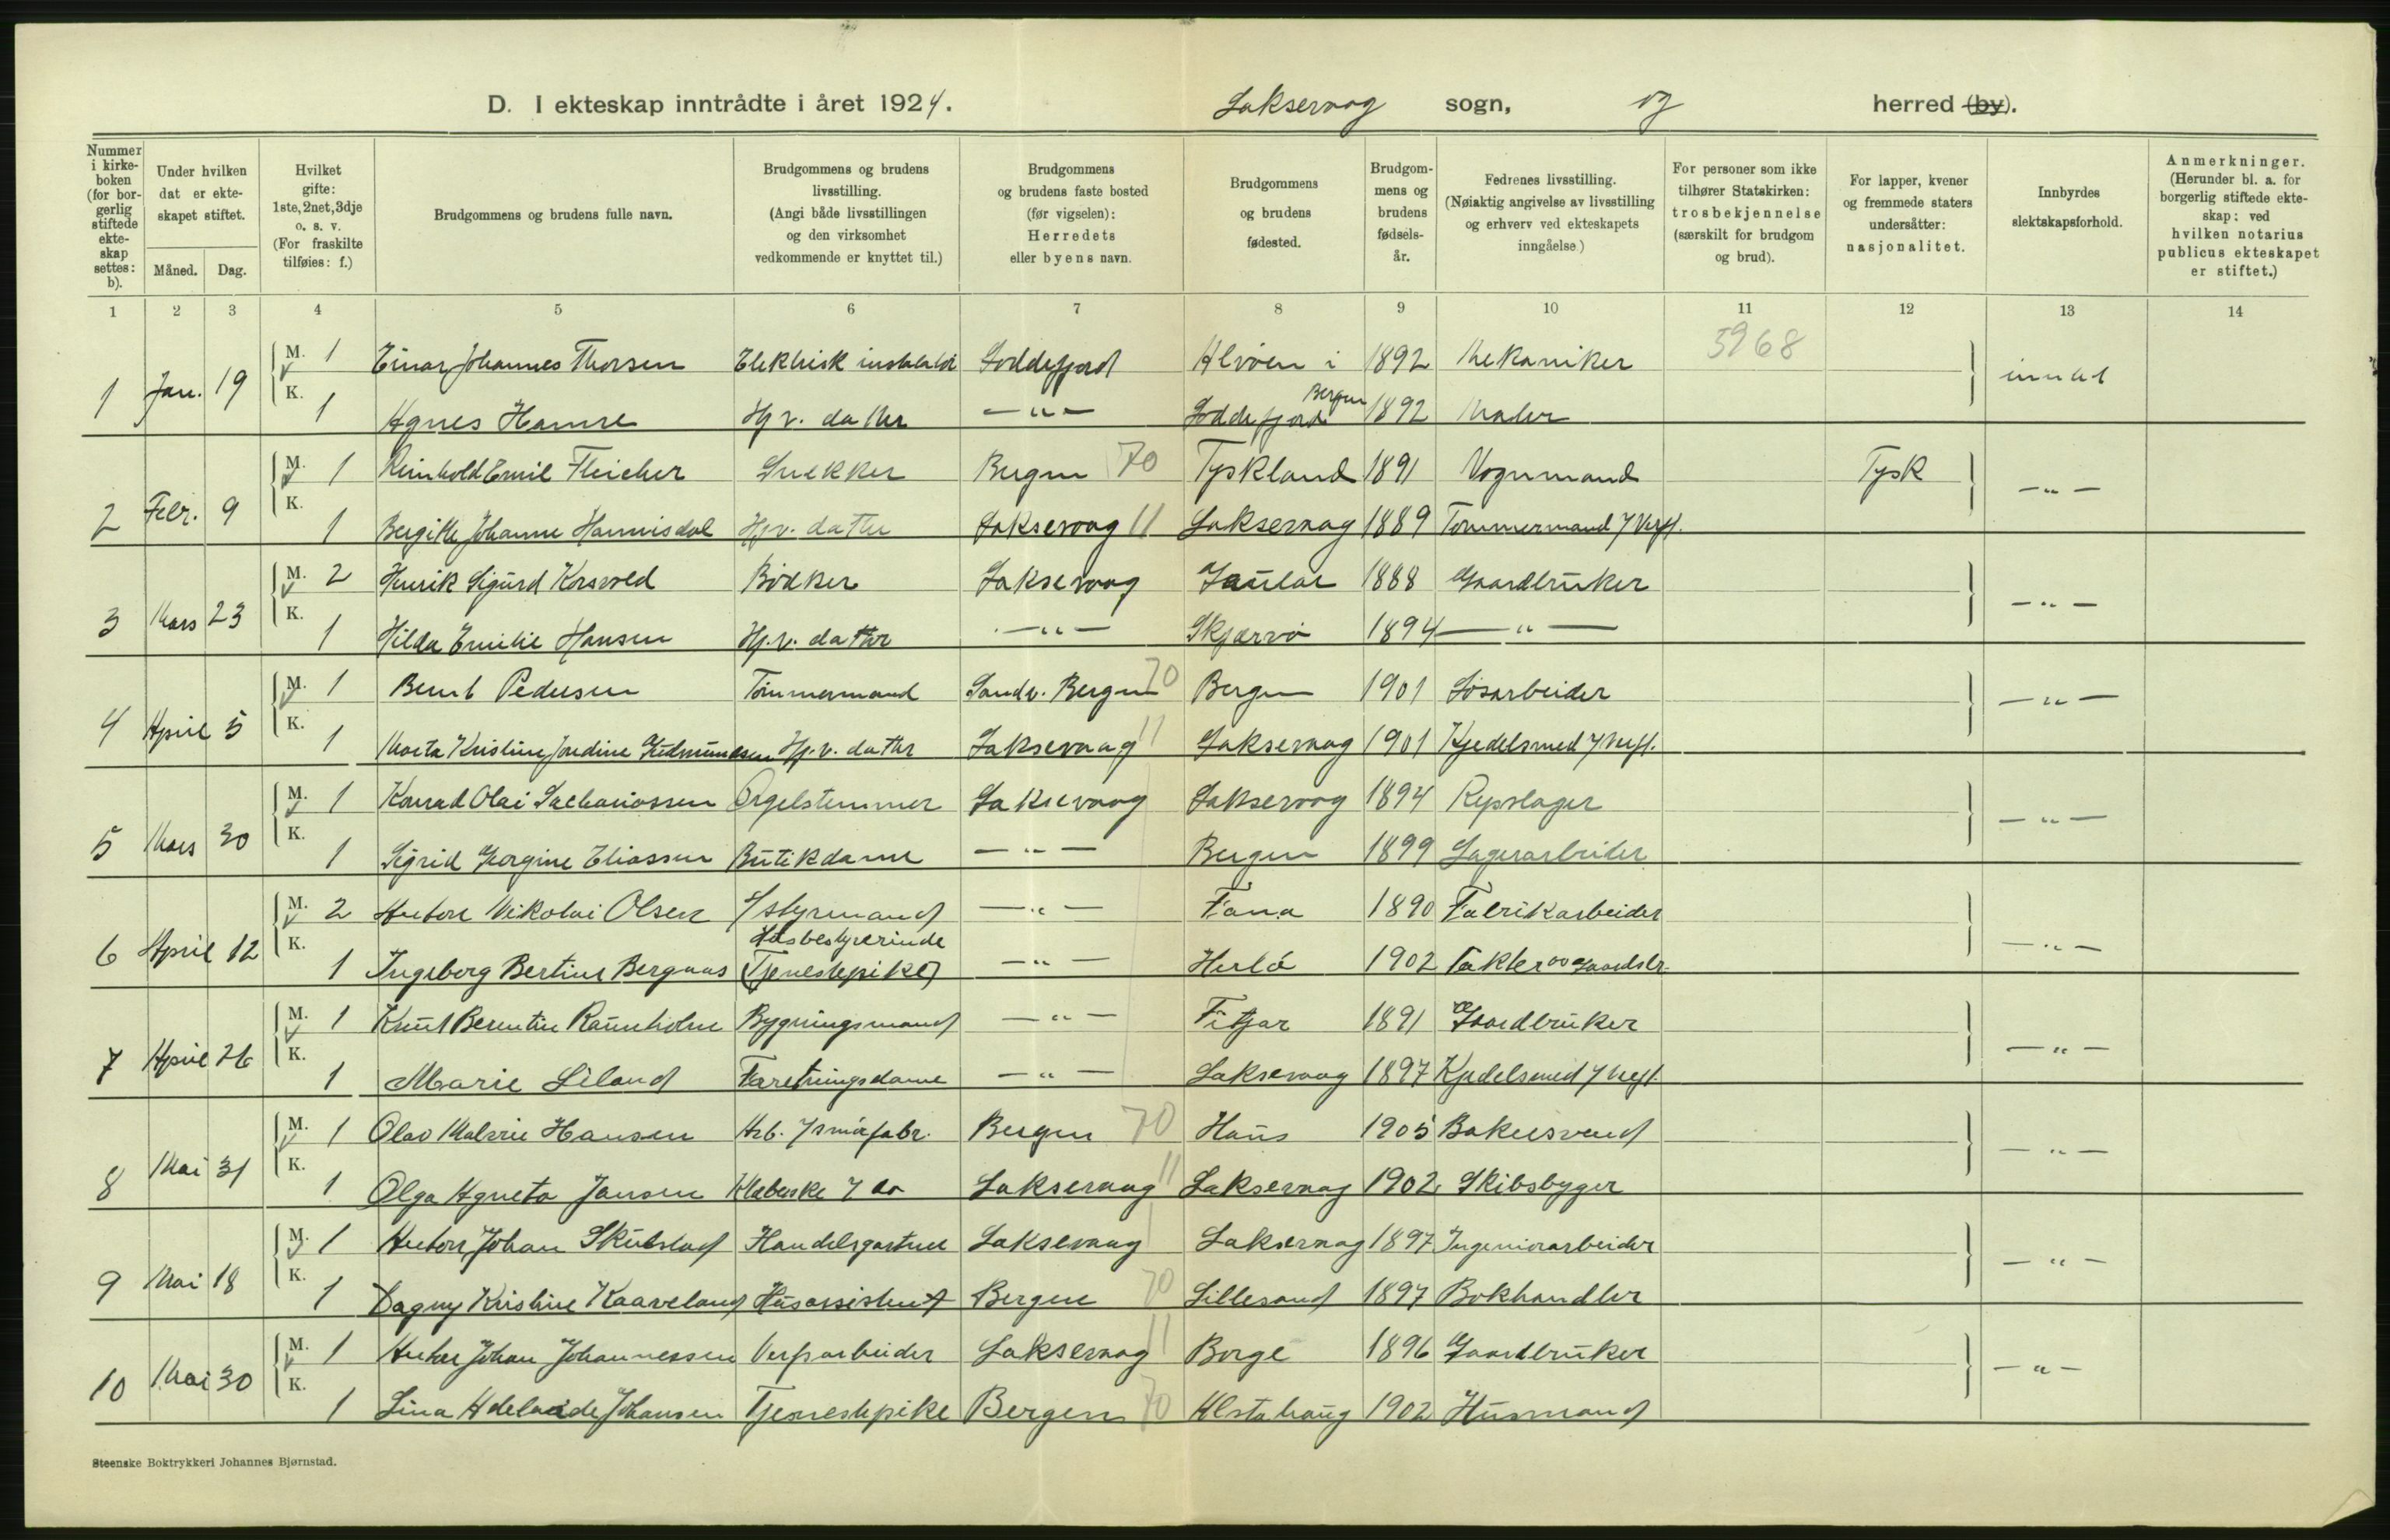 D. I ekteskap inntrådte i året 1924. Laksevaag sogn, og herred (by).
Nummer i kirkeboken (for borgerlig stiftede ekteskap settes: b).
Under hvilken dat er ekteskapet stiftet.
Måned. Dag.
Hvilket gifte: 1ste, 2net, 3dje o. s. v. (For fraskilte tilføies: f.)
Brudgommens og brudens fulle navn.
Brudgommens og brudens livsstilling. (Angi både livsstillingen og den virksomhet vedkommende er knyttet til.)
Brudgommens og brudens faste bosted (før vigselen): Herredets eller byens navn.
Brudgommens og brudens fødested.
Brudgommens og brudens fødselsår.
Fedrenes livsstilling. (Nøiaktig angivelse av livsstilling og erhverv ved ekteskapets inngåelse.)
For personer som ikke tilhører Statskirken: trosbekjennelse (særskilt for brudgom og brud).
For lapper, kvener og fremmede staters undersåtter: nasjonalitet.
Innbyrdes slektskapsforhold.
Anmerkninger. (Herunder bl. a. for borgerlig stiftede ekteskap: ved hvilken notarius publicus ekteskapet er stiftet.)
1 2 3 4 5 6 7 8 9 10 11 12 13 14
M. 1 Einar Johannes Thorsen Elektrisk Loddefjord Alvøen i 1892 Mekaniker 5968
1 Jan. 19 Bergen intet
K. 1 Agnes Hamre Hj.v. datter —"— Loddefjord 1892 Maler
M. 1 Reinhold Emil Fleicher Snekker Bergen 70 Tyskland 1891 Vognmand Tysk
2 Febr. 9 —"—
K. 1 Bergitte Johanne Hannisdal Hj.v. datter Laksevaag 11 Laksevaag 1889 Tømmermand / Verft.
M. 2 Henrik Sigurd Korsvold Bødker Laksevaag Gaular 1888 Gaardbruker
3 Mars 23 —"—
K. 1 Hilda Emilie Hansen Hj.v. datter —"— Skjærvø 1894 —"—
M. 1 Bernt Pedersen Tømmermand Sandv. Bergen 70 Bergen 1901 Løsarbeider
4 April 5 —"—
K. 1 Marta Kristine Jondine Gudmundsen Hj.v. datter Laksevaag 11 Laksevaag 1901 Kjedelsmed / Verft.
M. 1 Konrad Olai Sachariassen Orgelstemmer Laksevaag Laksevaag 1894 Repslager
5 Mars 30 —"—
K. 1 Sigrid Georgine Eliassen Butikdame —"— Bergen 1899 Lagerarbeider
M. 2 Anton Nikolai Olsen Styrmand —"— Fana 1890 Fabrikarbeider
6 April 12 Husbestyrerinde —"—
K. 1 Ingeborg Bertine Bergnas (Tjenestepike) —"— Herlø 1902 Gaardbr.
M. 1 Knut Berentin Raunholm Bygningsmand —"— Fitjar 1891 Gaardbruker
7 April 26 —"—
K. 1 Marie Liland Forretningsdame —"— Laksevaag 1897 Kjedelsmed / Verft.
M. 1 Olav Hansen Arb. / smørfabr. Bergen 70 Haus 1905 Bakersvend
8 Mai 31 —"—
K. 1 Olga Agneta Jansen / do Laksevaag 11 Laksevaag 1902 Skibsbygger
M. 1 Anton Johan Skulstad Handelsgartner Laksevaag Laksevaag 1897 Ingeniørarbeider
9 Mai 18 —"—
K. 1 Dagny Kristine Kaaveland Husassistent Bergen 70 Lillesand 1897 Bokhandler
M. 1 Anker Johan Johannessen Verftsarbeider Laksevaag 11 Borge 1896 Gaardbruker
10 Mai 30 —"—
K. 1 Lina Adelaide Johansen Tjenestepike Bergen 70 Alstahaug 1902 Husmand
Steenske Boktrykkeri Johannes Bjørnstad.